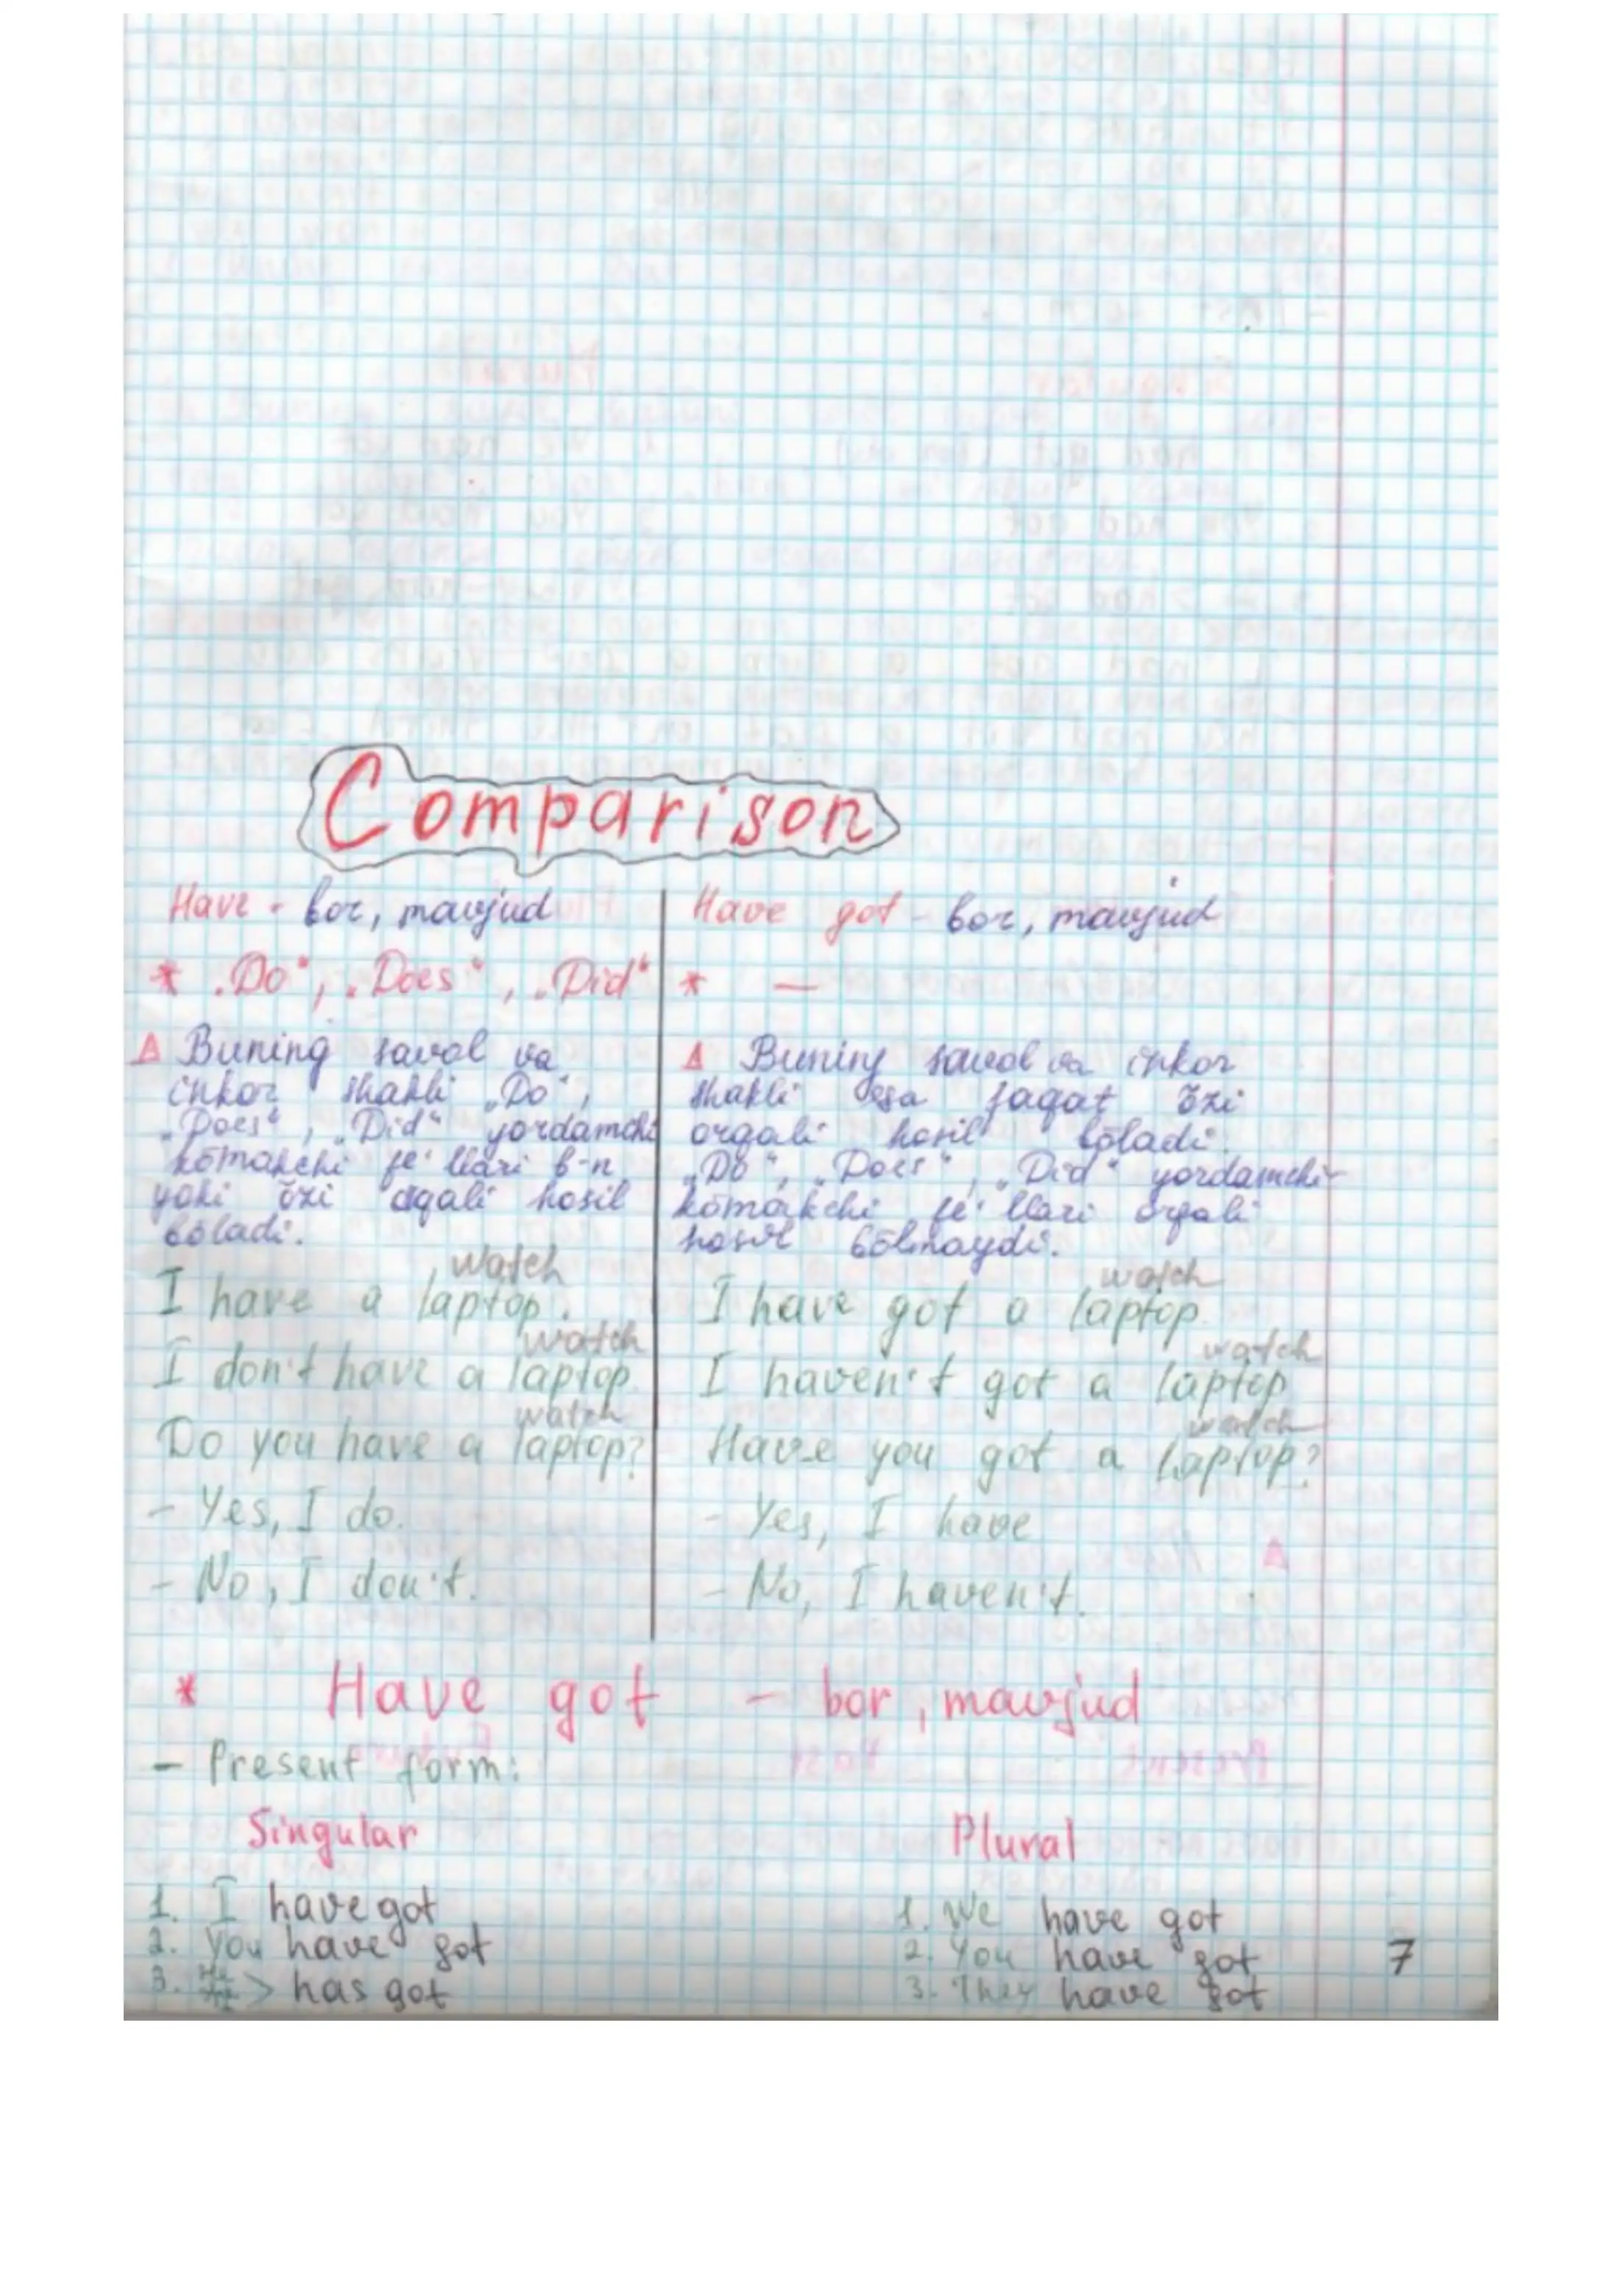 Comparison
Have - bor, mavjud
* „Do“, „Does“, „Did“
Δ Buning savol va
inkor shakli „Do“,
„Does“, „Did“ yordamchi
kōmakchi fe'llari b-n
yoki ōzi orqali hosil
bōladi.
watch
I have a laptop.
watch
I don't have a laptop
watch
Do you have a laptop?
- Yes, I do.
- No, I don't.
Have got - bor, mavjud
* —
Δ Buning savol va inkor
shakli esa faqat ōzi
orqali hosil bōladi.
„Do“, „Does“, „Did“ yordamchi-
kōmakchi fe'llari orqali
hosil bōlmaydi.
watch
I have got a laptop
watch
I haven't got a laptop
watch
Have you got a laptop?
- Yes, I have
- No, I haven't.
* Have got - bor, mavjud
- Present form:
Singular
1. I have got
2. You have got
3. > has got
Plural
1. We have got
2. You have got
3. They have got
7